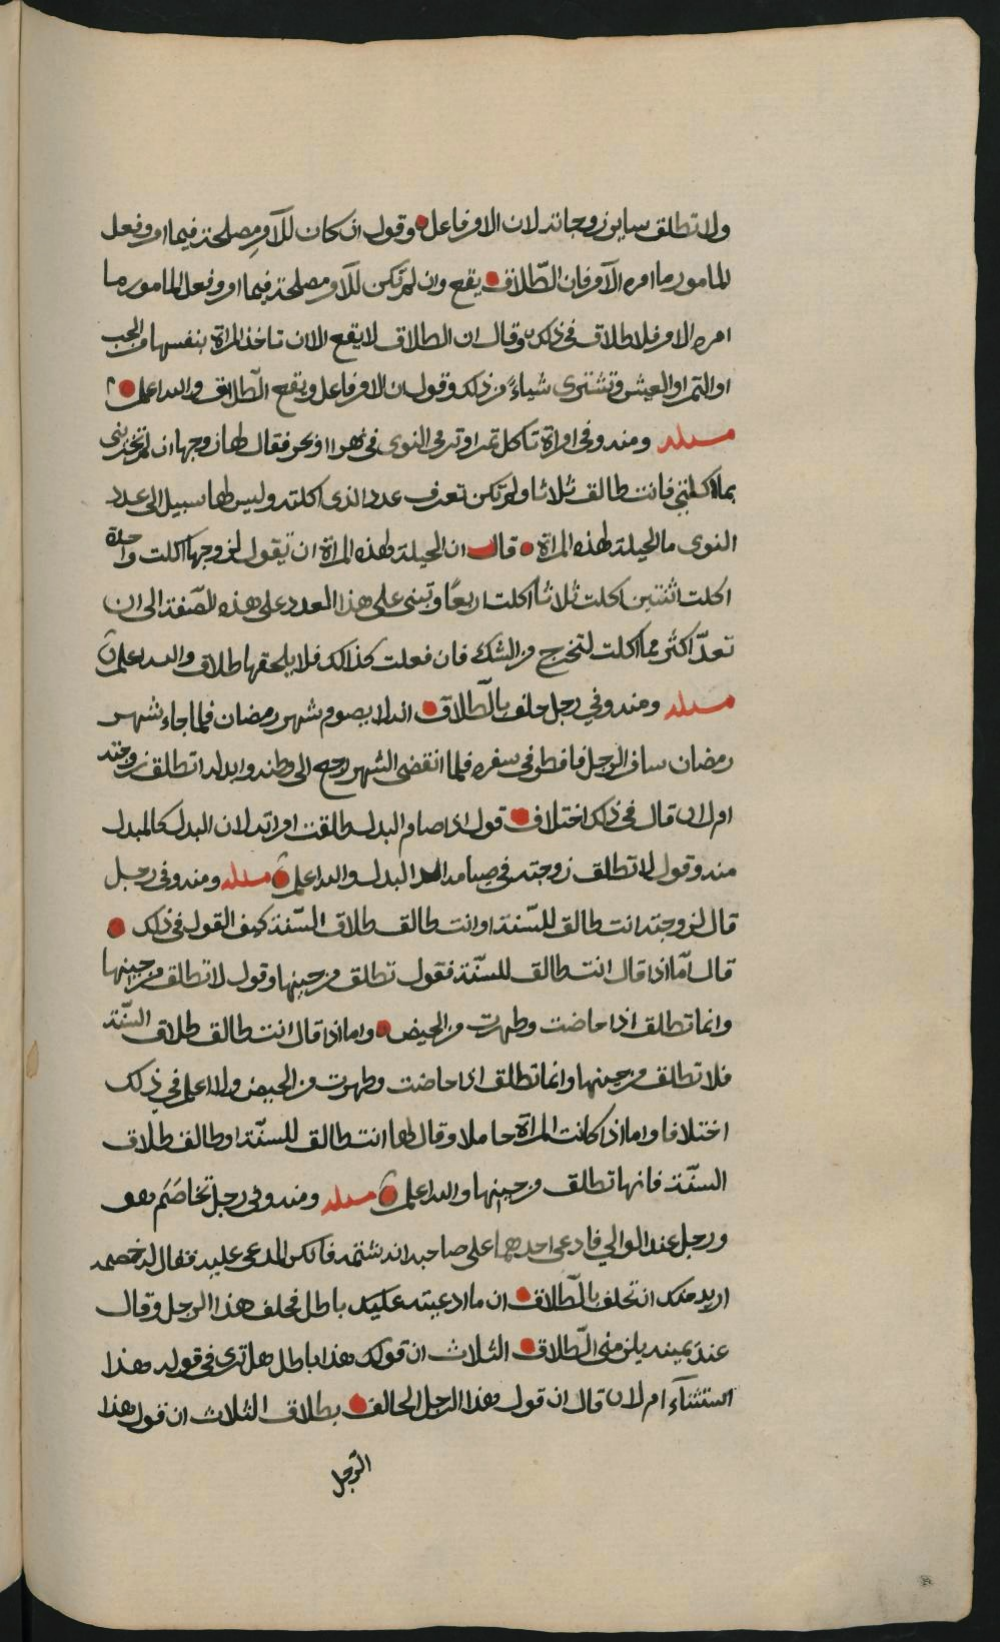 ولا تطلق ساير زوجاته لان الامر فاعل وقول ان كان للآمر مصلحة فيما امر وفعل
المامور ما امره الآمر فان الطّلاق يقع وان لم تكن للآمر مصلحة فيما امر وفعل المامور ما
امره الامر فلا طلاق في ذلك وقال ان الطلاق لا يقع الا ان تاخذ المراة بنفسها من الحب
او التمر او العيش وتشتري شياءً من ذلك وقول ان الامر فاعل ويقع الطّلاق والله اعلم
مسئلة ومنه وفي امراة تاكل تمرا وترمي النوى في نهر او بحر فقال لها زوجها ان لم تخبريني
بما اكلتي فانت طالق ثلاثا ولم تكن تعرف عدد الذي اكلته وليس لها سبيل الى عدد
النوى ما الحيلة لهذه المراة قال ان الحيلة لهذه المراة ان تقول لزوجها اكلت واحدة
اكلت اثنتين اكلت ثلاثا اكلت اربعًا وتبني على هذا العدد على هذه الصّفة الى ان
تعدّ اكثر مما اكلت لتخرج من الشك فان فعلت كذالك فلا يلحقها طلاق والله اعلم
مسئلة ومنه وفي رجل حلف بالطّلاق انه لا يصوم شهر رمضان فلما جاء شهر
رمضان سافر الرجل فافطر في سفره فلما انقضى الشهر رجع الى وطنه وابدله اتطلق زوجته
ام لا قال في ذلك اختلاف قول اذا صام البدل طلقت امراته لان البدل كالمبدل
منه وقول لا تطلق زوجته في صيامه البدل والله اعلم مسئلة ومنه وفي رجل
قال لزوجته انت طالق للسّنة او انت طالق طلاق السّنة كيف القول في ذلك
قال امّا اذا قال انت طالق للسنّة فقول تطلق من حينها وقول لا تطلق من حينها
وانما تطلق اذا حاضت وطهرت من الحيض واما اذا قال انت طالق طلاق السنّة
فلا تطلق من حينها وانما تطلق اذا حاضت وطهرت من الحيض ولا اعلم في ذلك
اختلافا واما اذا كانت المراة حاملا وقال لها انت طالق للسنّة او طالق طلاق
السنّة فانها تطلق من حينها والله اعلم مسئلة ومنه وفي رجل تخاصَم هو
ورجل عند الوالي فادعى احدهما على صاحبه انه شتمه فانكر المدعى عليه فقال له خصمه
اريد منك ان تحلف بالطّلاق ان ما ادعيته عليك باطل فحلف هذا الرجل وقال
عند يمينه يلزمني الطّلاق الثلاث ان قولك هذا باطل هل ترى في قوله هذا
استثنآء ام لا قال ان قول هذا الرجل الحالف بطلاق الثلاث ان قول هذا
الرّجل